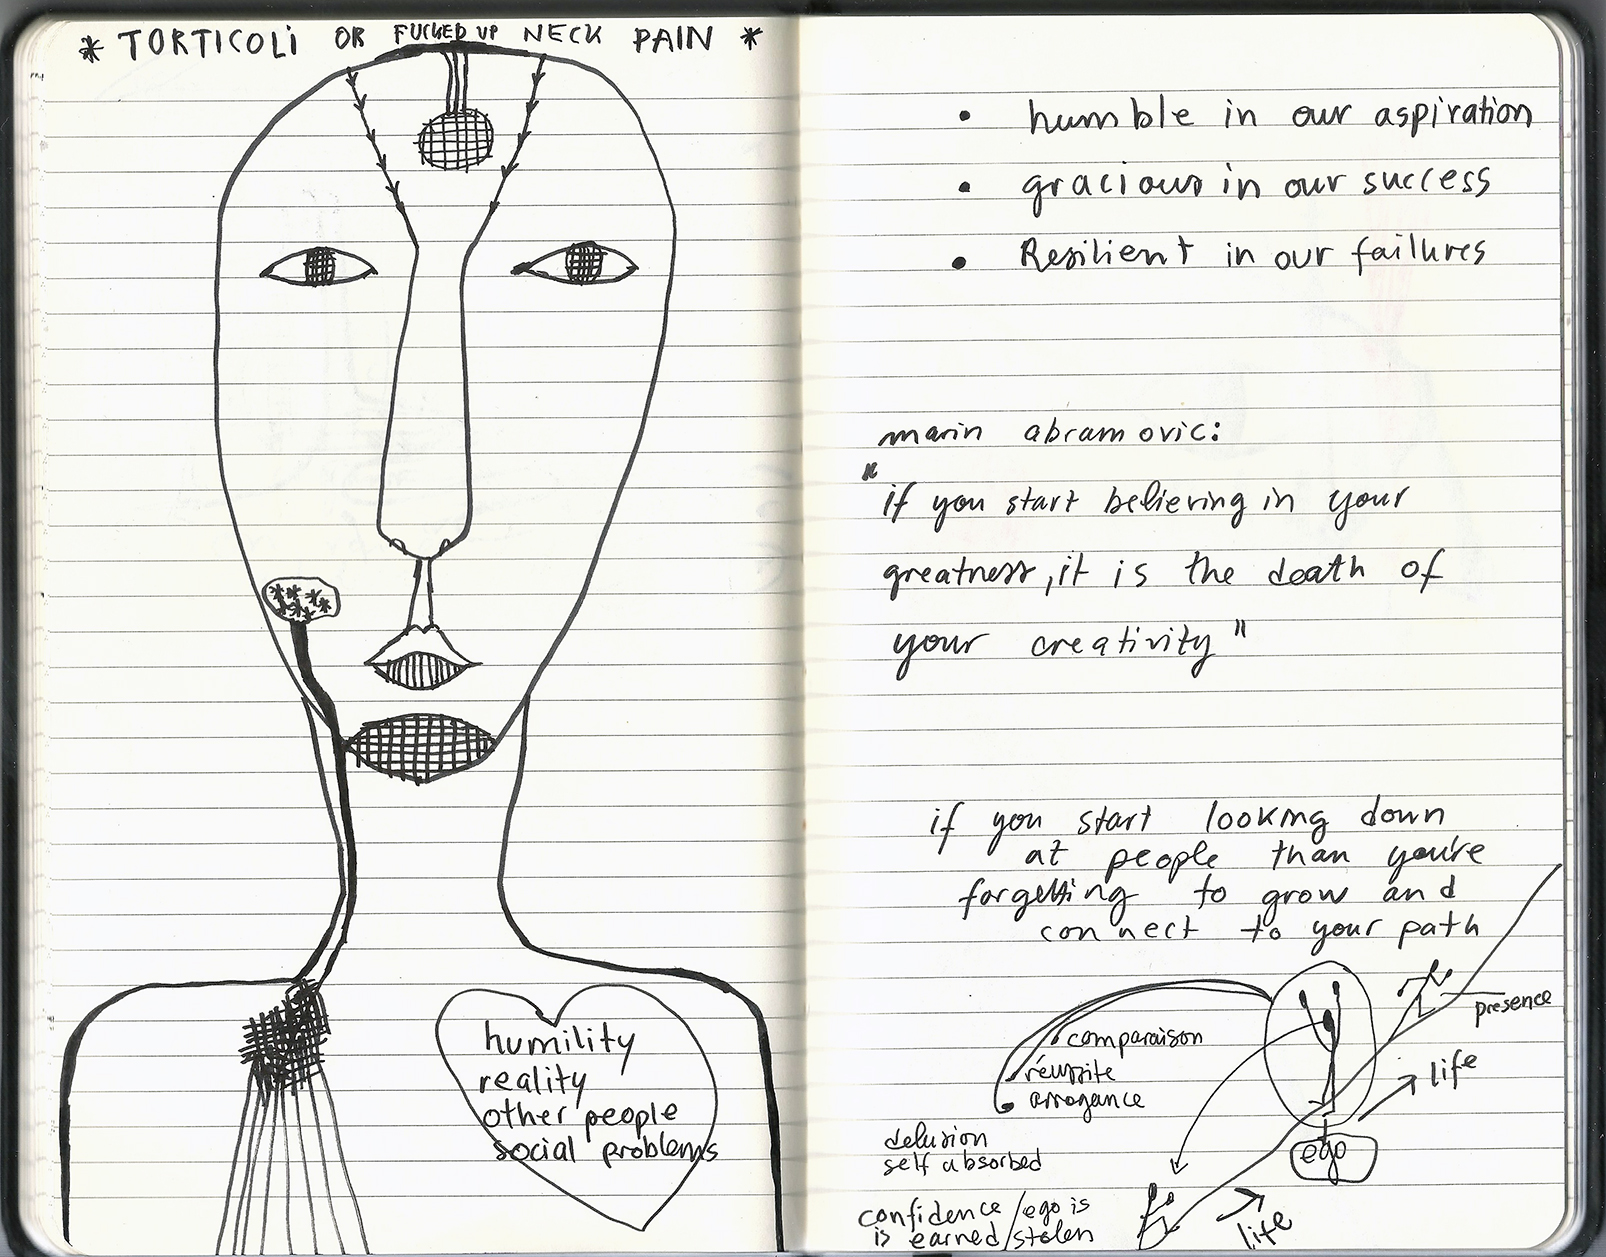 * TORTICOLi OR FUCKED UP NECK PAIN *
humility
reality
other people
social problems
• humble in our aspiration
• gracious in our success
• Resilient in our failures
marin abramovic:
"if you start believing in your
greatness, it is the death of
your creativity"
if you start looking down
at people than you're
forgetting to grow and
connect to your path
presence
comparaison
réussite
arrogance
life
delusion
self absorbed
ego
confidence / ego is
is earned / stolen
life